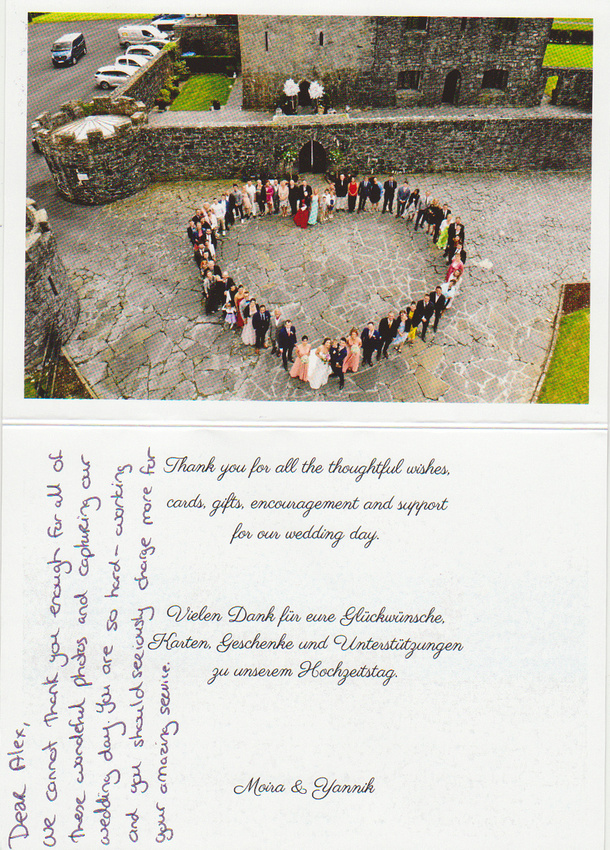 Thank you for all the thoughtful wishes,
cards, gifts, encouragement and support
for our wedding day.
Vielen Dank für eure Glückwünsche,
Karten, Geschenke und Unterstützungen
zu unserem Hochzeitstag.
Moira & Yannik
Dear Alex,
We cannot thank you enough for all of
these wonderful photos and capturing our
wedding day. You are so hard-working
and you should seriously charge more for
your amazing service.